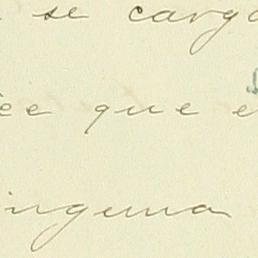 se cargo
que e
inguna